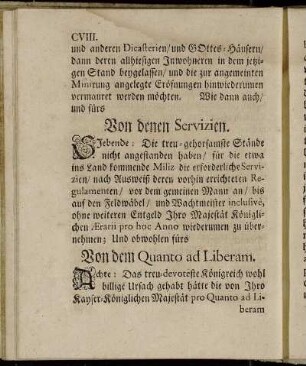 CVIII.
und anderen Dicasterien/ und GOttes-Häusern/
dann deren allhiesigen Inwohneren in dem jetzi-
gen Stand beygelassen/ und die zur angemeinten
Minirung angelegte Eröfnungen hinwiederumen
vermauret werden möchten. Wie dann auch/
und fürs
Von denen Servizien.
Siebende: Die treu-gehorsamste Stände
nicht angestanden haben/ für die etwa
ins Land kommende Miliz die erforderliche Servi-
zien/ nach Ausweiß deren vorhin errichteten Re-
gulamenten/ vor dem gemeinen Mann an/ bis
auf den Feldwäbel/ und Wachtmeister inclusivè,
ohne weiteren Entgeld Ihro Majestät Königli-
chen Ærarii pro hoc Anno wiederumen zu über-
nehmen; Und obwohlen fürs
Von dem Quanto ad Liberam.
Achte: Das treu-devoteste Königreich wohl
billige Ursach gehabt hätte die von Ihro
Kayser-Königlichen Majestät pro Quanto ad Li-
beram